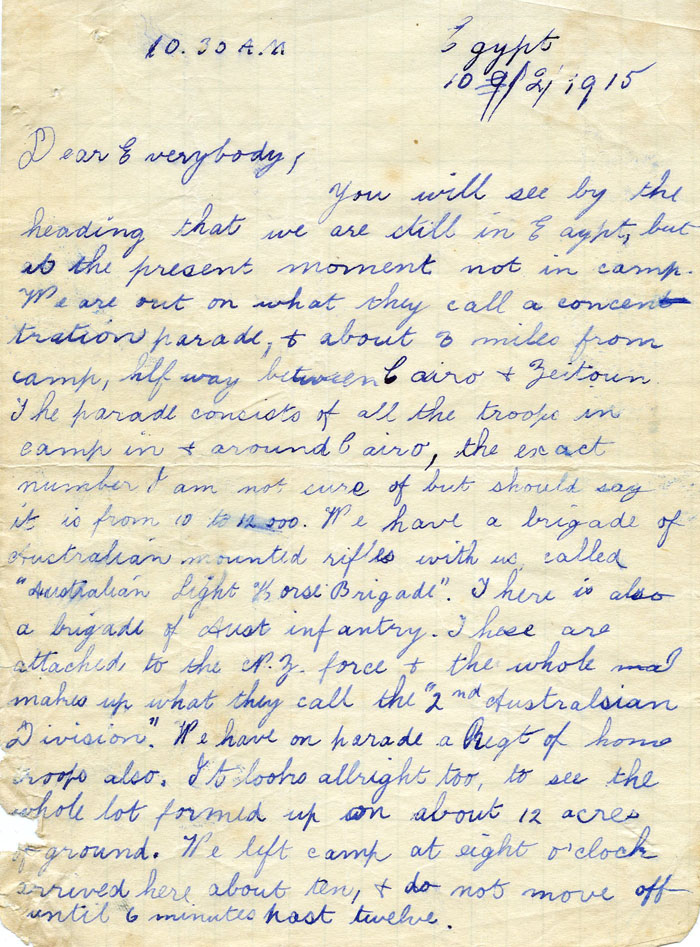 10.30 A.M Egypt
10 9/2/1915
Dear Everybody,
You will see by the
heading that we are still in Egypt, but
at the present moment not in camp.
We are out on what they call a concent
tration parade, & about 3 miles from
camp, hlf way between Cairo & Zeitoun
The parade consists of all the troops in
camp in & around Cairo, the exact
number I am not cure of but should say
it is from 10 to 12 000. We have a brigade of
Australian mounted rifles with us called
"Australian Light Horse Brigade". There is also
a brigade of Aust infantry. These are
attached to the N.Z. force & the whole
makes up what they call the "2nd Australsian
Division". We have on parade a Regt of home
troops also. It looks allright too, to see the
whole lot formed up on about 12 acres
of ground. We left camp at eight o'clock
arrived here about ten, & do not move off
until 6 minutes past twelve.